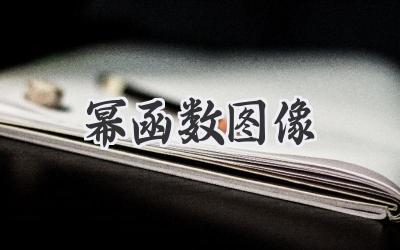 幂函数图像